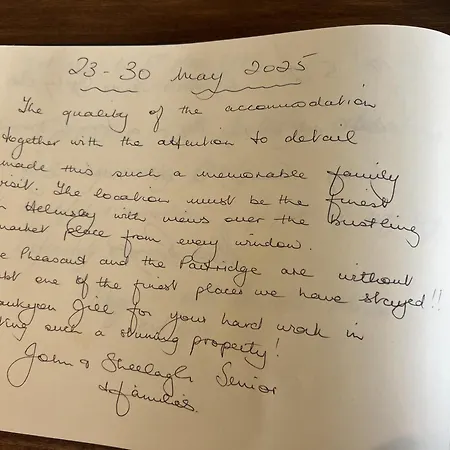 23 - 30 May 2025
The quality of the accommodation
together with the attention to detail
made this such a memorable family
visit. The location must be the finest
Helmsley with views over the bustling
market place from every window.
e Pheasant and the Partridge are without
bt one of the finest places we have stayed!!
ankyou Jill for your hard work in
king such a stunning property!
John & Sheelagh Senior
& families.